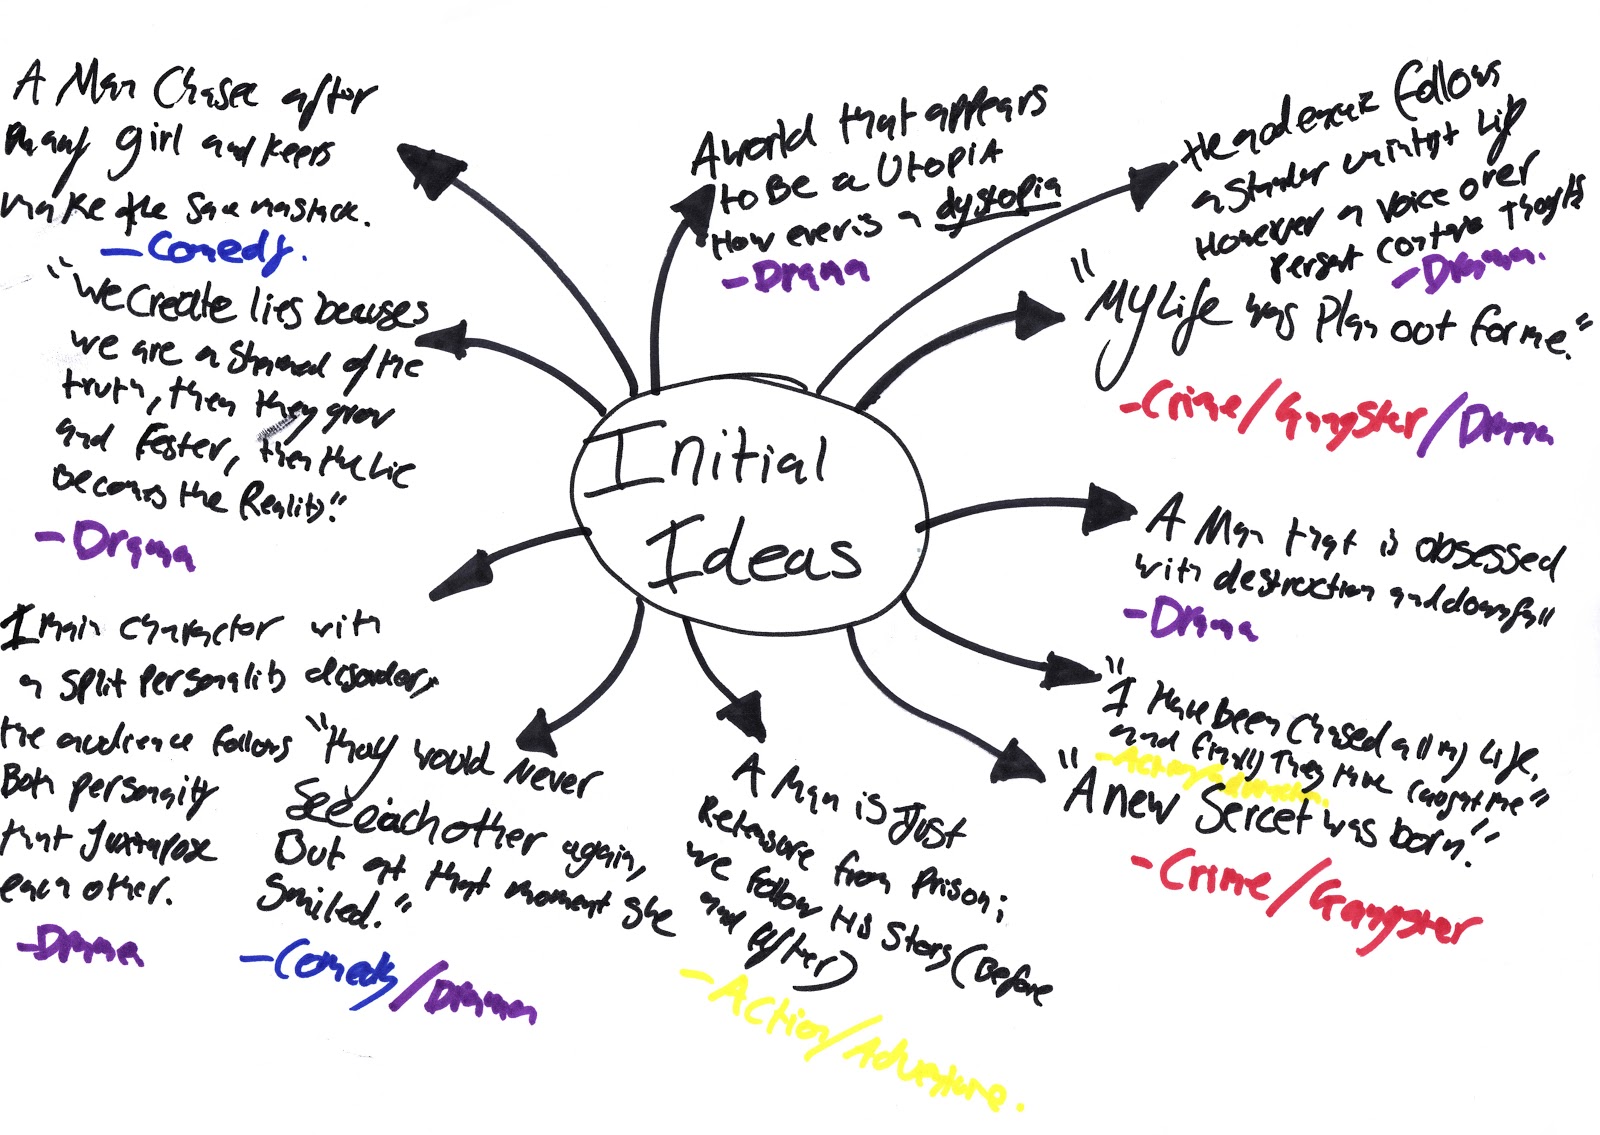 Initial
Ideas
A Man Chase after
many girl and keeps
make the same
- Comedy.
"We create lies becauses
we are a shamed of the
truth, then they grow
and Fester, then the Lie
Becomes the Reality."
- Drama
A world that appears
to Be a Utopia
However is a dystopia
- Drama
follows
a
However a voice over
thoughts
- Drama.
"My Life was Plan out for me."
- Crime/Gangster/Drama
A Man that is obsessed
with destruction and downfall
- Drama
"I Have Been Chased all my Life,
and finally They Have Caught me"
- Action/adventure.
"A new Sercet was born."
- Crime/Gangster
A Man is Just
from Prison;
we follow His Story (Before
and After)
- Action/Adventure.
"They would Never
See each other again,
But at that moment she
Smiled."
- Comedy/Drama
main character with
a split personality disorder,
the audience follows
Both personality
that Juxtapose
each other.
- Drama